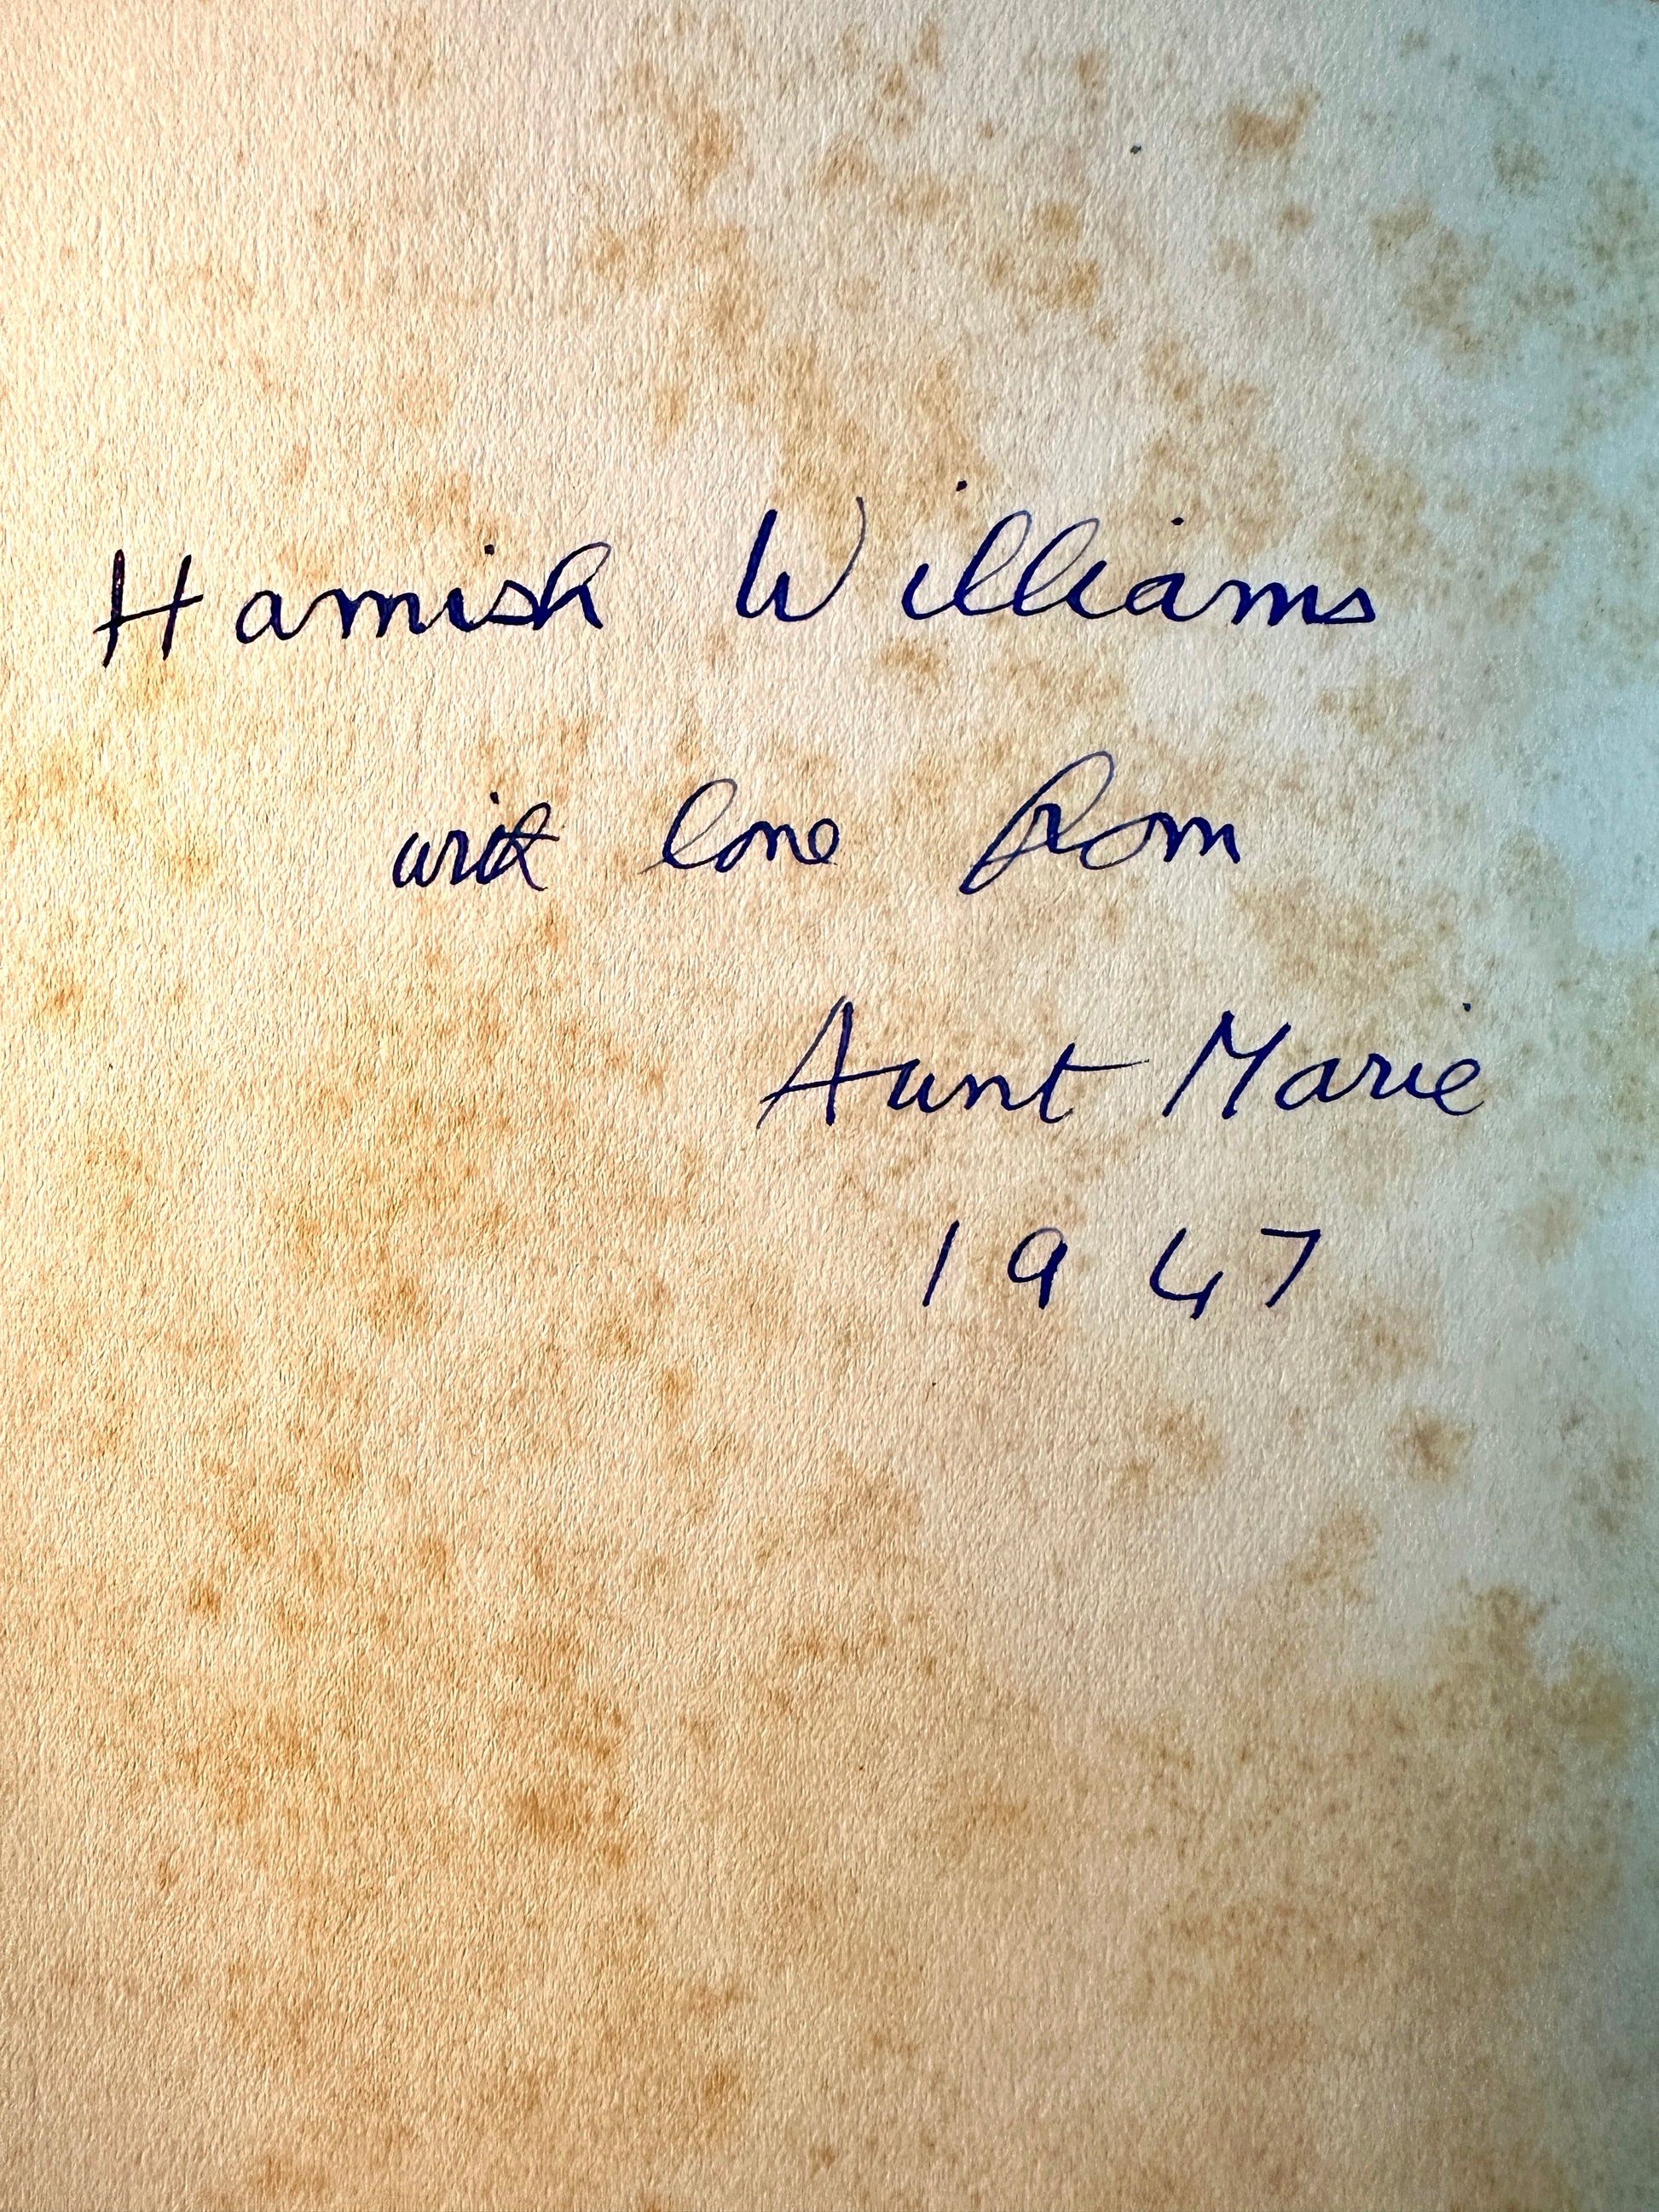 Hamish Williams
with love from
Aunt Marie
1947